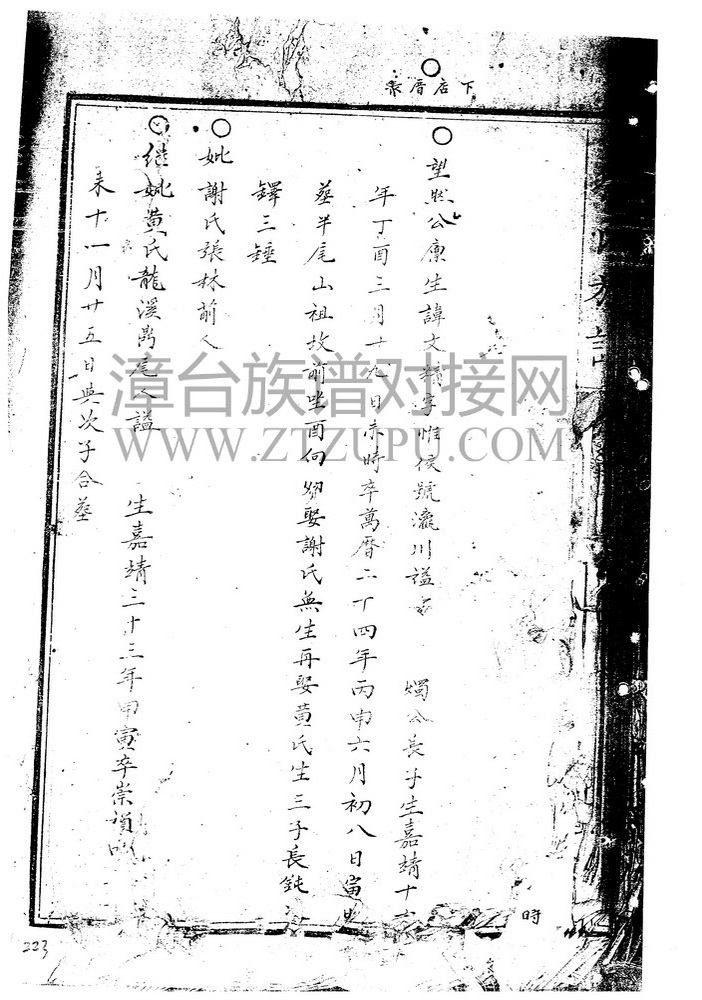 下店厝衆
時
望然公廪生諱文精字惟侯號瀛川謚 燭公長子生嘉靖十六
年丁酉三月十九日未時卒萬曆二十四年丙申六月初八日寅
葬半尾山祖坟前坐酉向夘娶謝氏無生再娶黄氏生三子長鈍
鐸三錘
妣謝氏張林前人
継妣黄氏龍溪 尾人謚 生嘉靖三十三年甲寅卒崇禎
未十一月廿五日與次子合葬
漳台族谱对接网
WWW.ZTZUPU.COM
223